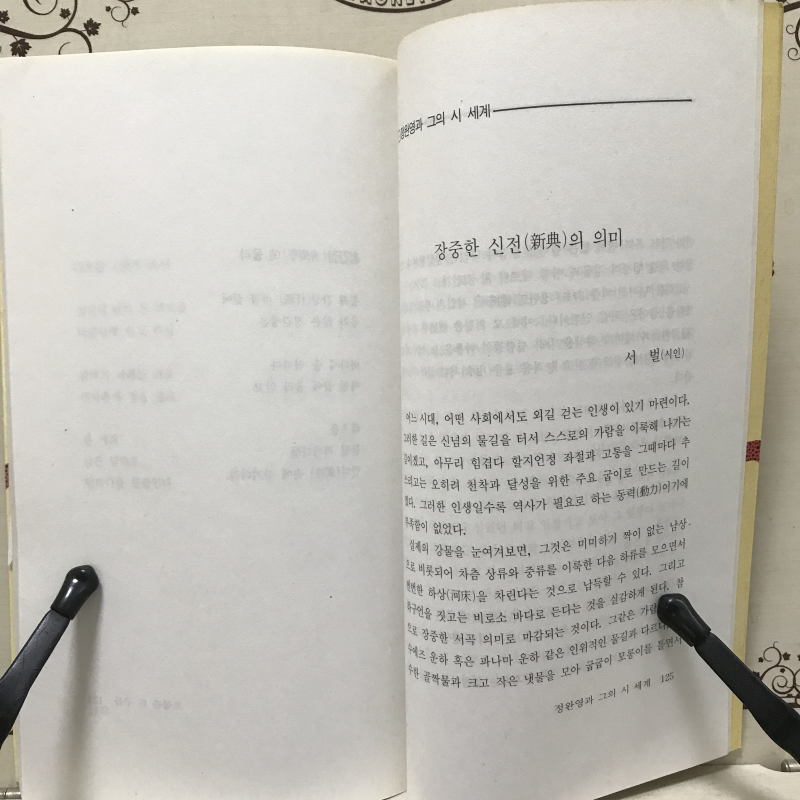 정완영과 그의 시 세계
장중한 신전(新典)의 의미
서 벌(시인)
어느 시대, 어떤 사회에서도 외길 걷는 인생이 있기 마련이다.
그러한 길은 신념의 물길을 터서 스스로의 가람을 이룩해 나가는
길이겠고, 아무리 힘겹다 할지언정 좌절과 고통을 그때마다 추
스리고는 오히려 천착과 달성을 위한 주요 굽이로 만드는 길이
겠다. 그러한 인생일수록 역사가 필요로 하는 동력(動力)이기에
부족함이 없었다.
실제의 강물을 눈여겨보면, 그것은 미미하기 짝이 없는 남상
으로 비롯되어 차츰 상류와 중류를 이룩한 다음 하류를 모으면서
번번한 하상(河床)을 차린다는 것으로 납득할 수 있다. 그리고
하구언을 짓고는 비로소 바다로 든다는 것을 실감하게 된다. 참
으로 장중한 서곡 의미로 마감되는 것이다. 그같은
수에즈 운하 혹은 파나마 운하 같은 인위적인 물길과
수한 골짝물과 크고 작은 냇물을 모아 굽굽이 모롱이를 돌면서
정완영과 그의 시 세계 125